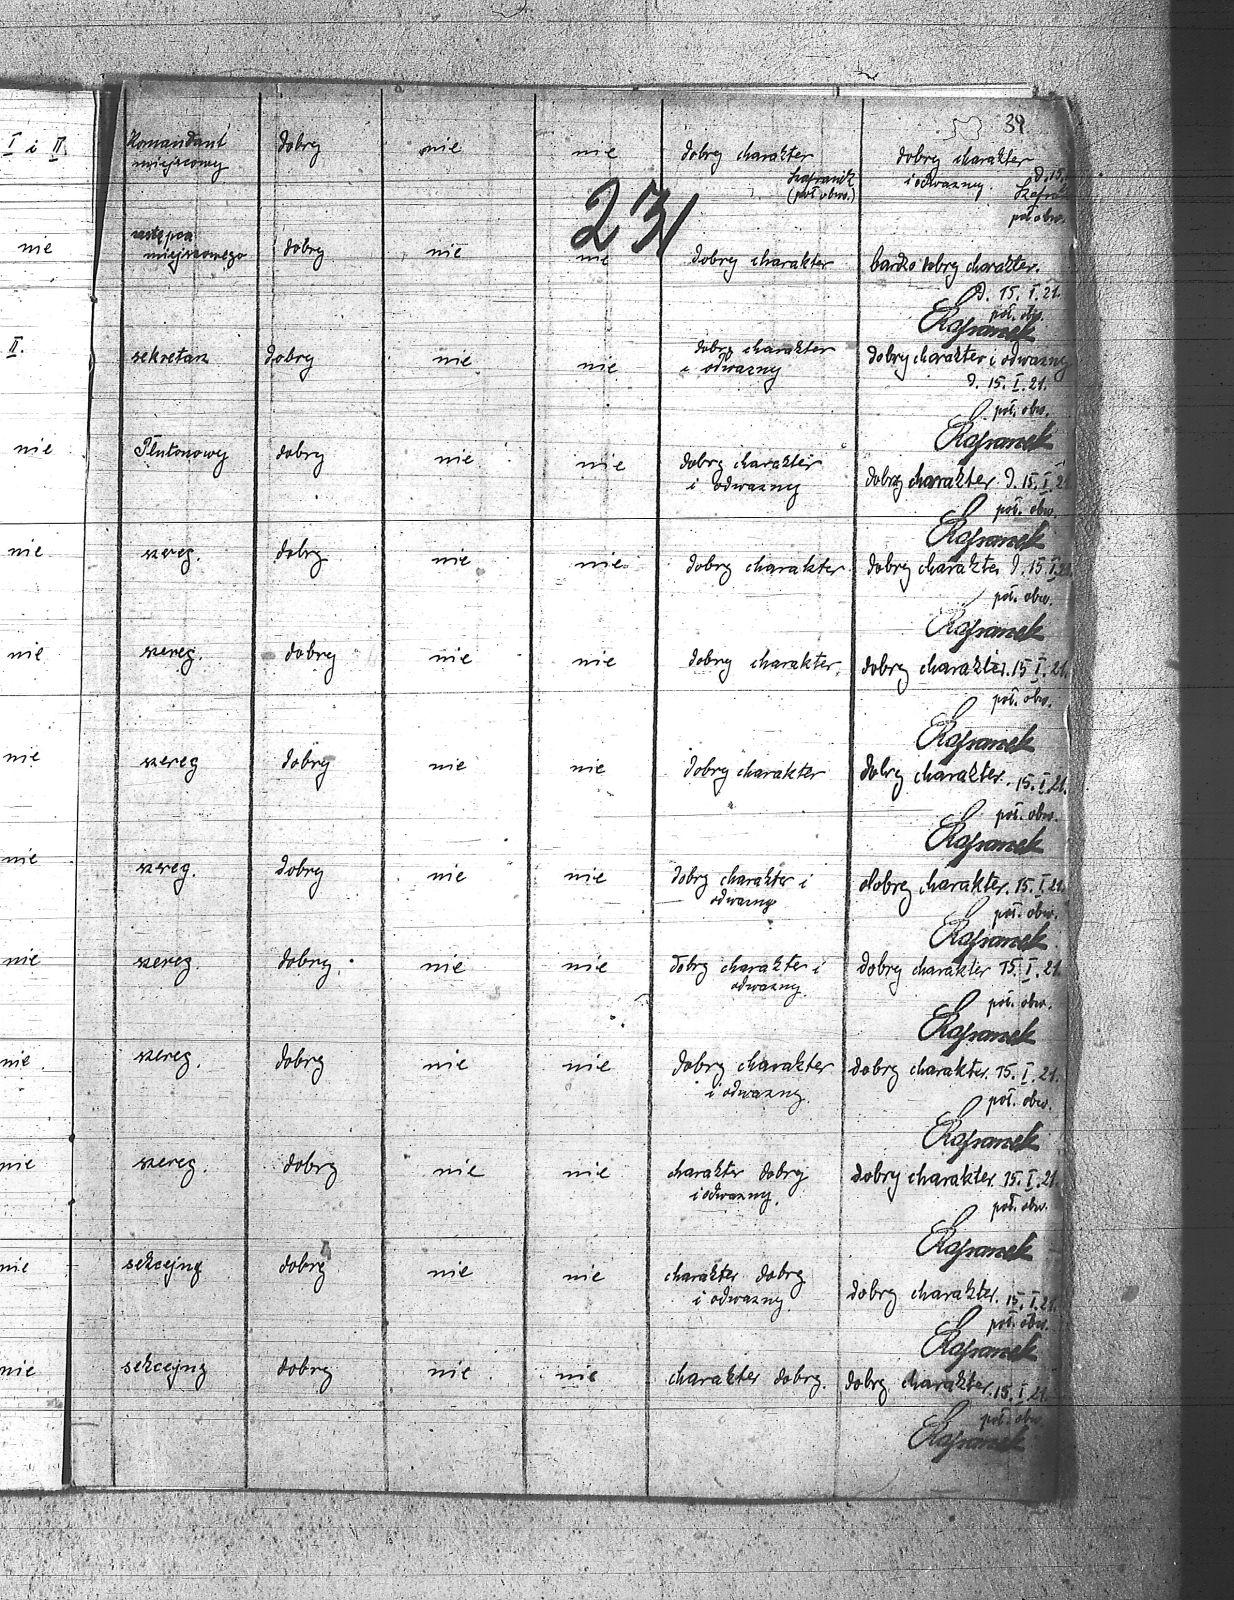 39
I i II Komandant dobry nie nie dobry charakter dobry charakter
miejscowy i odważny. d. 15.
(poł. obw.)
poł. obw.
231
nie zastępca dobry nie nie dobry charakter bardzo dobry charakter.
miejscowego
d. 15. I. 21.
poł. obw.
Szafranek
II. sekretarz dobry nie nie dobry charakter dobry charakter i odważny
i odważny d. 15. I. 21.
poł. obw.
Szafranek
nie Plutonowy dobry nie nie dobry charakter dobry charakter d. 15. I. 21
i odważny
poł. obw.
Szafranek
nie szereg. dobry nie nie dobry charakter dobry charakter d. 15 I. 21
poł. obw.
Szafranek
nie szereg. dobry nie nie dobry charakter. dobry charakter. 15 I. 21.
poł. obw.
Szafranek
nie szereg dobry nie nie dobry charakter dobry charakter. 15. I. 21.
poł. obw.
Szafranek
nie szereg. dobry nie nie dobry charakter i dobry charakter. 15. I. 21.
odważny
poł. obw.
Szafranek
nie szereg. dobry. nie nie dobry charakter i dobry charakter 15. I. 21.
odważny
poł. obw.
Szafranek
nie. szereg. dobry nie nie dobry charakter dobry charakter. 15. I. 21.
i odważny.
poł. obw.
Szafranek
nie szereg. dobry nie nie charakter dobry dobry charakter 15. I. 21.
i odważny.
poł. obw.
Szafranek
nie sekcejny dobry nie nie charakter dobry dobry charakter. 15. I. 21.
i odważny.
poł. obw.
Szafranek
nie sekcejny dobry nie nie charakter dobry. dobry charakter. 15. I. 21.
poł. obw.
Szafranek